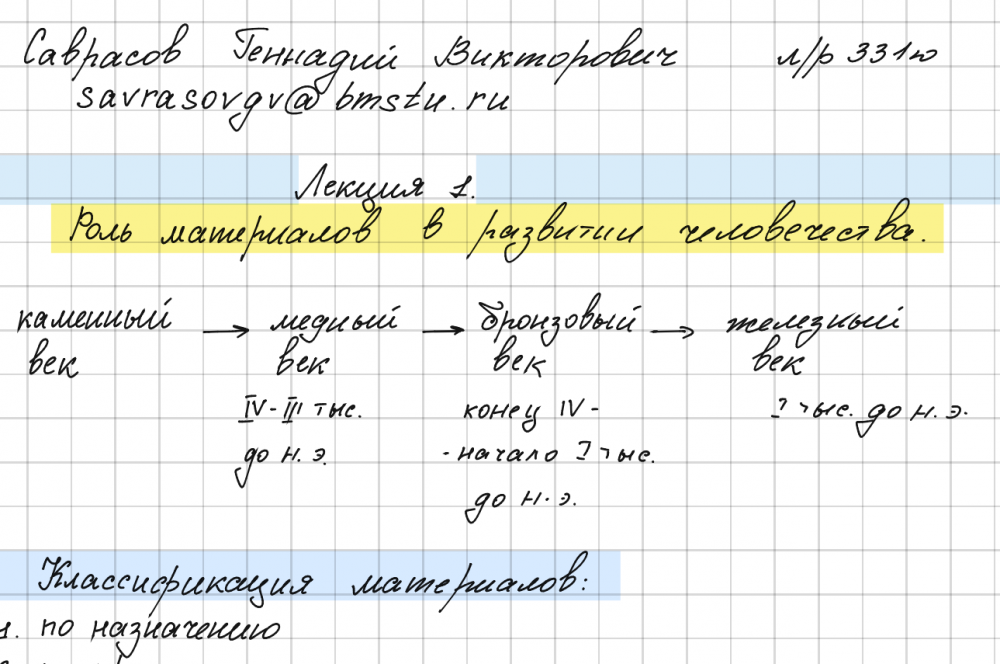 Саврасов Геннадий Викторович л/р 331ю
savrasovgv@bmstu.ru
Лекция 1.
Роль материалов в развитии человечества.
каменный век → медный век → бронзовый век → железный век
IV-III тыс. до н.э.
конец IV -
- начало I тыс.
до н.э.
I тыс. до н.э.
Классификация материалов:
1. по назначению